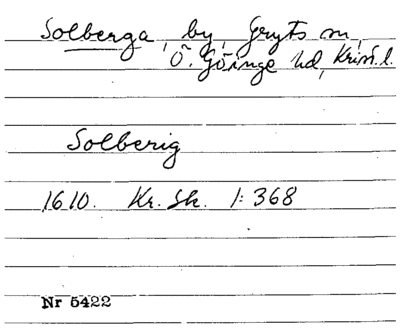 Solberga, by, Gryts sn,
Ö. Göinge hd, Krist. l.
Solberig
1610. Kr. Sk. 1:368
Nr 5422